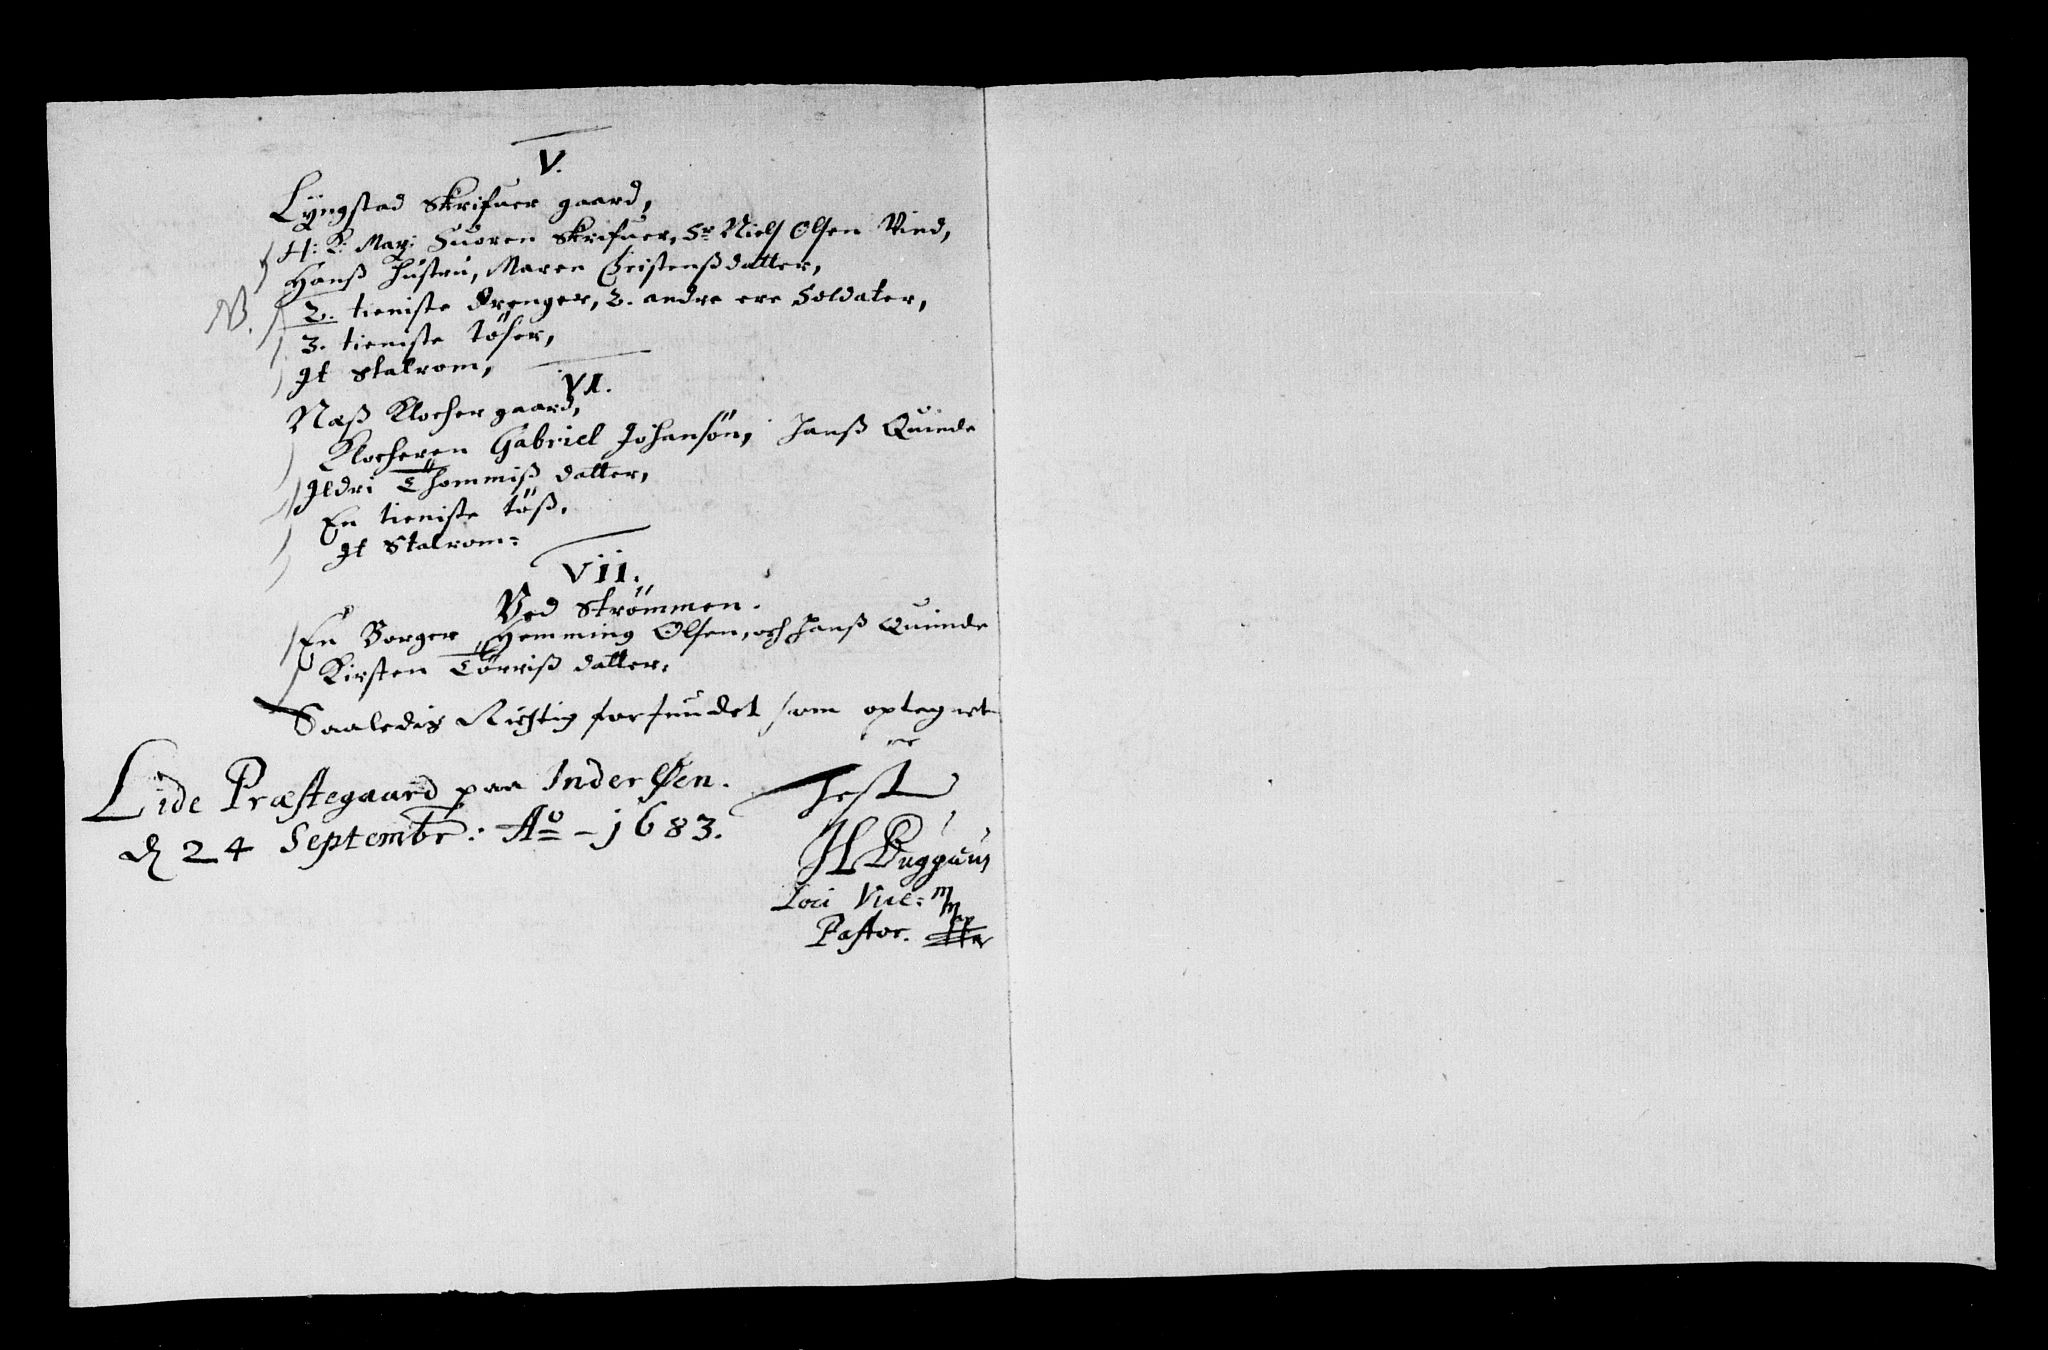 V.
Lÿngstad Skrifuer gaard,
H: K: May: Suoren Skrifuer, Sr Niels Olsen Vind,
Hanß Hustru, Maren Christenßdatter,
NB. 2. tieniste drenger, 2. andre ere Soldater,
3. tieniste töser,
It Stalrom,
VI.
Næß Klocher gaard,
Klocheren Gabriel Johansön, hanß Quinde
Ildri Thommiß datter,
En tieniste töß,
It Stalrom:
VII.
Ved Strömmen.
En Borger, Hemming Olsen, och hanß Quinde
Kirsten Törriß datter,
Saaledis Richtig forfundet som optegnet
er
Lide Præstegaard paa InderØen.
d 24 Septembr: Ao - 1683.
Test
H Buggaus
Loci Vice- mpp
Pastor.